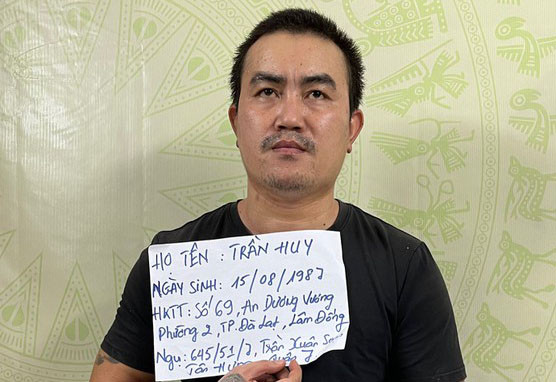 HỌ TÊN : TRẦN HUY
NGÀY SINH: 15/08/1987
HKTT: Số 69, An Dương Vương
Phường 2, TP. Đà Lạt, Lâm Đồng
Ngụ: 645/51/7, Trần Xuân
Tân Hưng